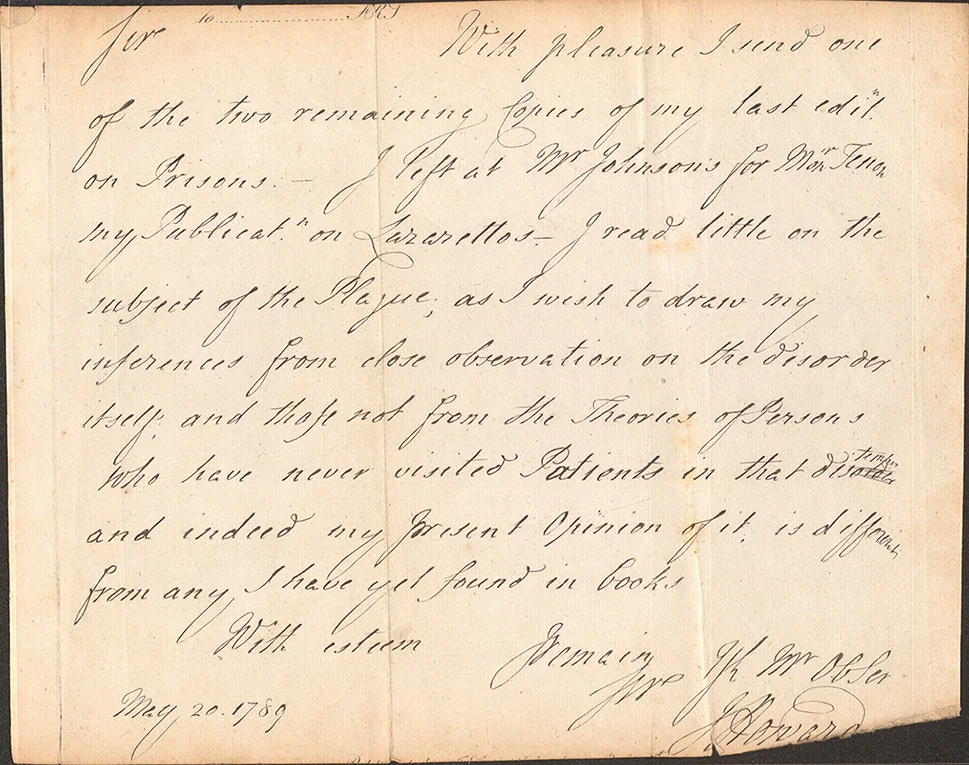 to ........................ FRS
Sir
With pleasure I send one
of the two remaining Copies of my last edit.n
on Prisons. — I left at Mr Johnsons for Monr Tenon
my Publicat.n on Lazarettos — I read little on the
subject of the Plague, as I wish to draw my
inferences from close observation on the disorder
itself, and those not from the Theories of Persons
who have never visited Patients in that distemper
and indeed my present Opinion of it, is different
from any, I have yet found in books
With esteem I remain
Sir Yr Mt Obt Ser
May 20. 1789
J Howard